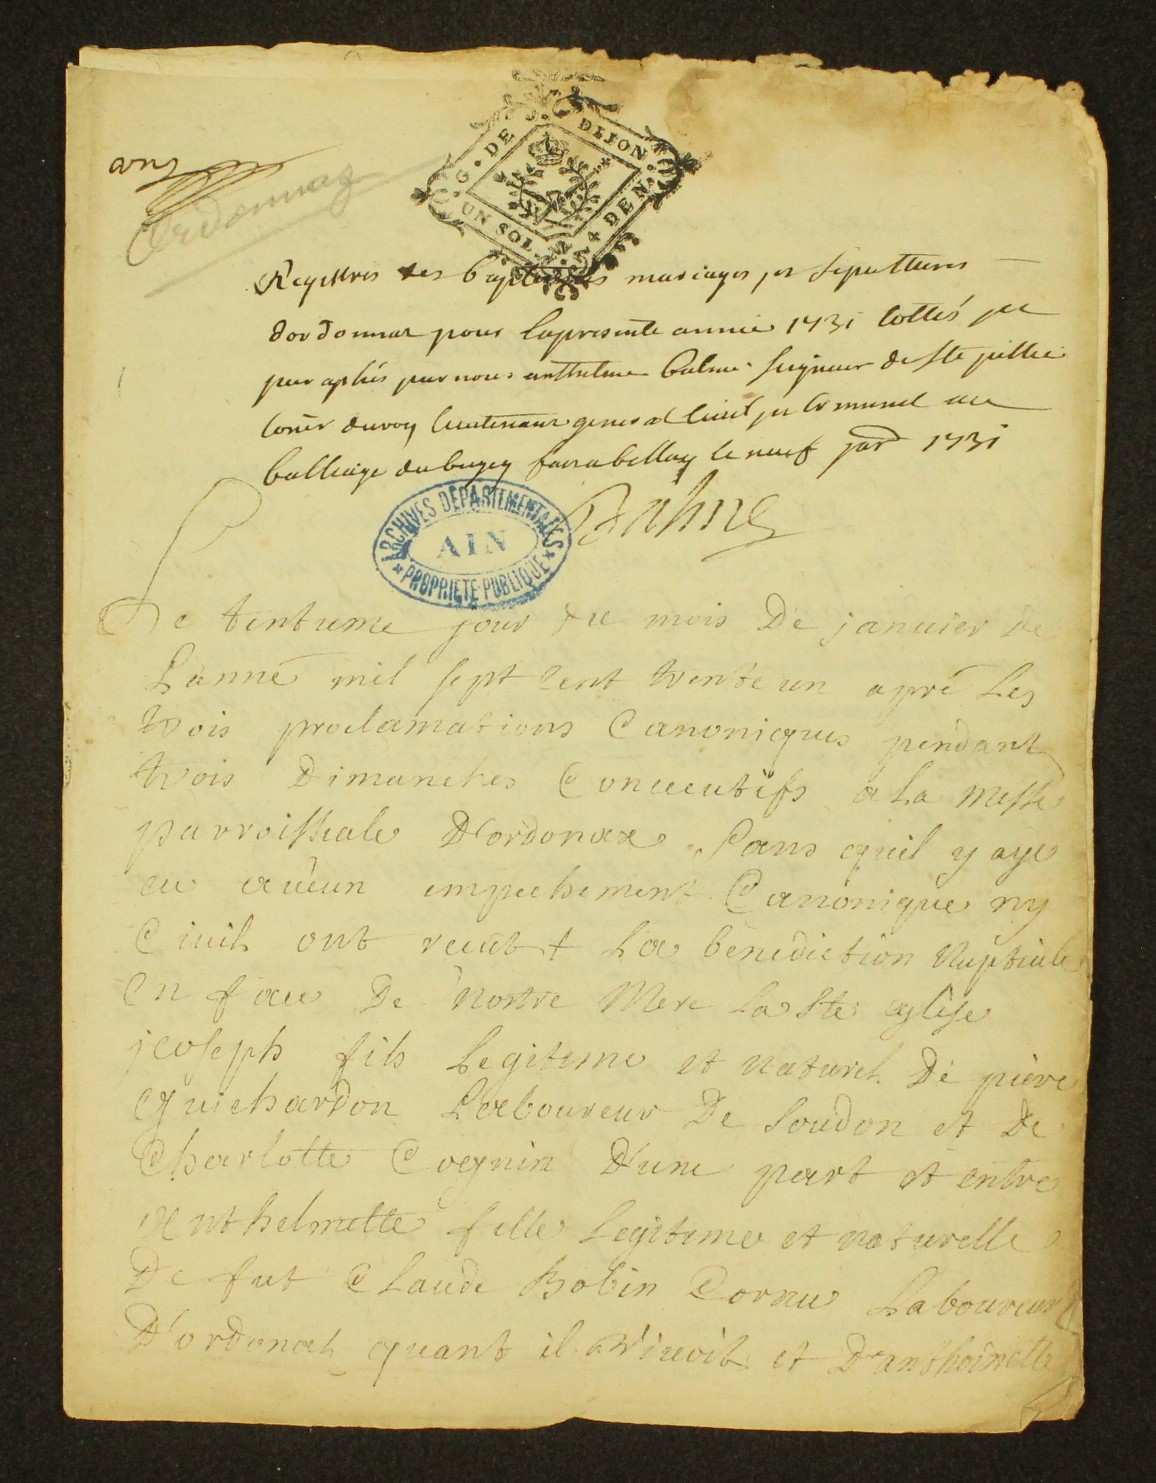 G. DE DIJON
UN SOL 4 DEN.
Ordonnaz
Registres des baptesmes mariages et sepultures
dordonnaz pour la presente annee 1731 cottés et
paraphés par nous anthelme balme seigneur de Ste
du roy lieutenant general civil et criminel au
balliage du bugey a bellay le neuf 1731
Balme
ARCHIVES DÉPARTEMENTALES
AIN
PROPRIÉTÉ PUBLIQUE
Le jour du mois De januier De
L'anné mil sept cent trente un apré Les
trois proclamations Canoniques pendant
trois Dimanches Conceutifs a La Messe
parroissiale D'ordonax Sans quil y aye
eu aucun empechement Canonique ny
Civil ont La benediction Nuptiale
En face De nostre Mere La Ste eglise
joseph fils Legitime et naturel De piere
guichardon Laboureur De Soudon et De
Charlotte Cognin D'une part et entre
anthelmette fille Legitime et naturelle
De fut Claude Bobin Cornu Laboureur
D'ordonax quant il viuoit et D'anthoinette